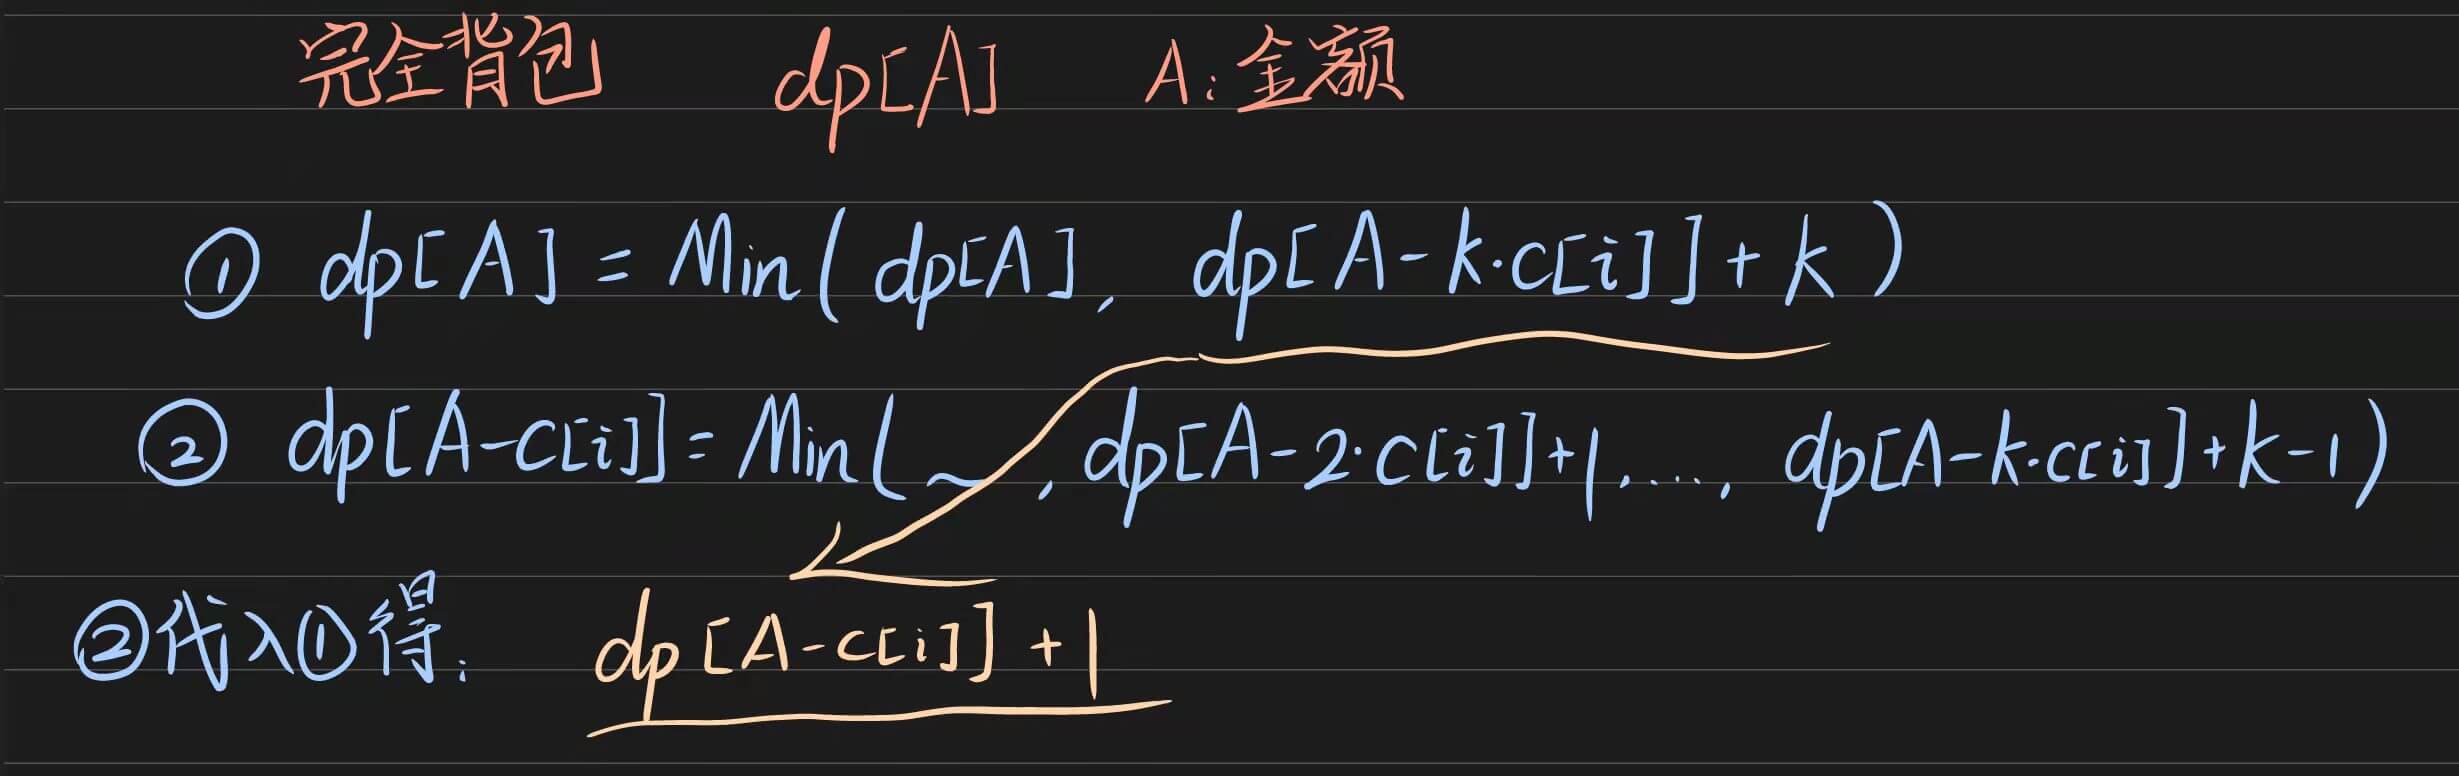 完全背包 dp[A] A:金额
① dp[A] = Min( dp[A], dp[A-k·c[i]]+k )
② dp[A-c[i]] = Min( ~, dp[A-2·c[i]]+1, ..., dp[A-k·c[i]]+k-1)
②代入①得: dp[A-c[i]]+1